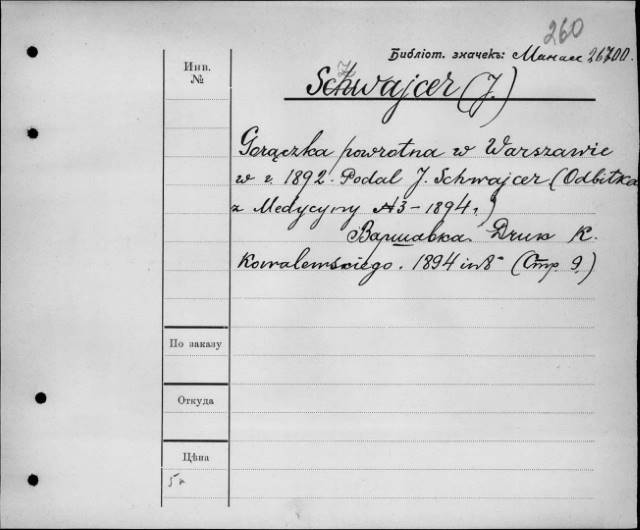 260
Библіот. значекъ: Манасс 26700.
Инв.
№
Schwajcer (J.)
Gorączka powrotna w Warszawie
w r. 1892. Podał J. Schwajcer (Odbitka
z Medycyny №3-1894 r.)
Варшавка. Druk K.
Kowalewskiego. 1894 in 8° (Стр. 9.)
По заказу
Откуда
Цѣна